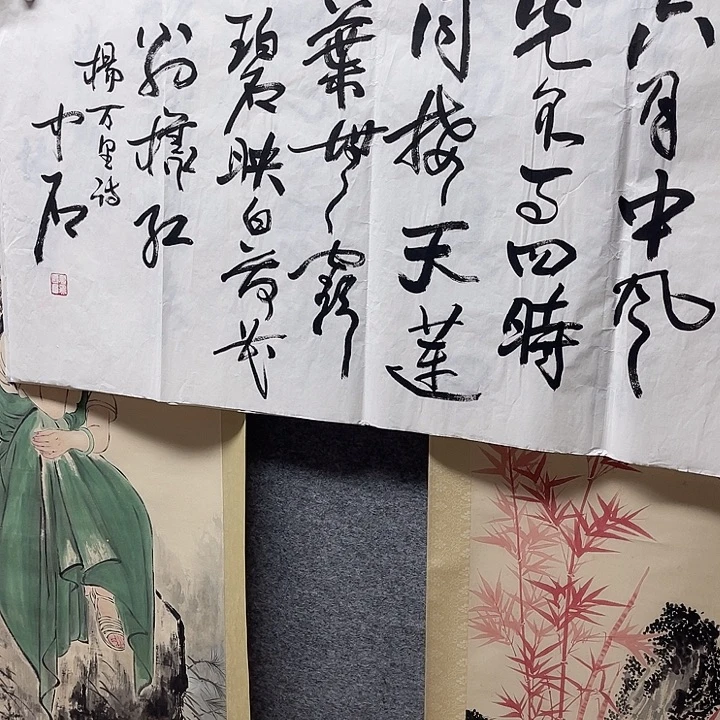 六月中風
光不与四時
同接天蓮
葉無窮
碧映日荷花
别樣紅
楊万里诗
中石